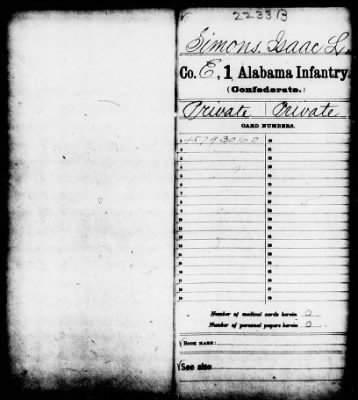 2233B
Simons, Isaac L.
Co. E, 1 Alabama Infantry.
(Confederate.)
Private Private
CARD NUMBERS.
1 45793060
Number of medical cards herein 0
Number of personal papers herein 0
BOOK MARK:
See also